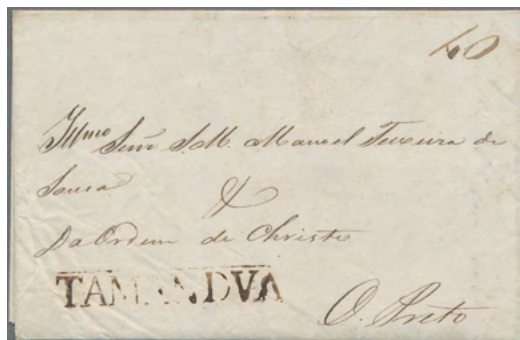 40
Illmo Senr S. M. Manoel Teixeira de
Sousa
Da Ordem de Christo
TAMANDVA
O. Preto